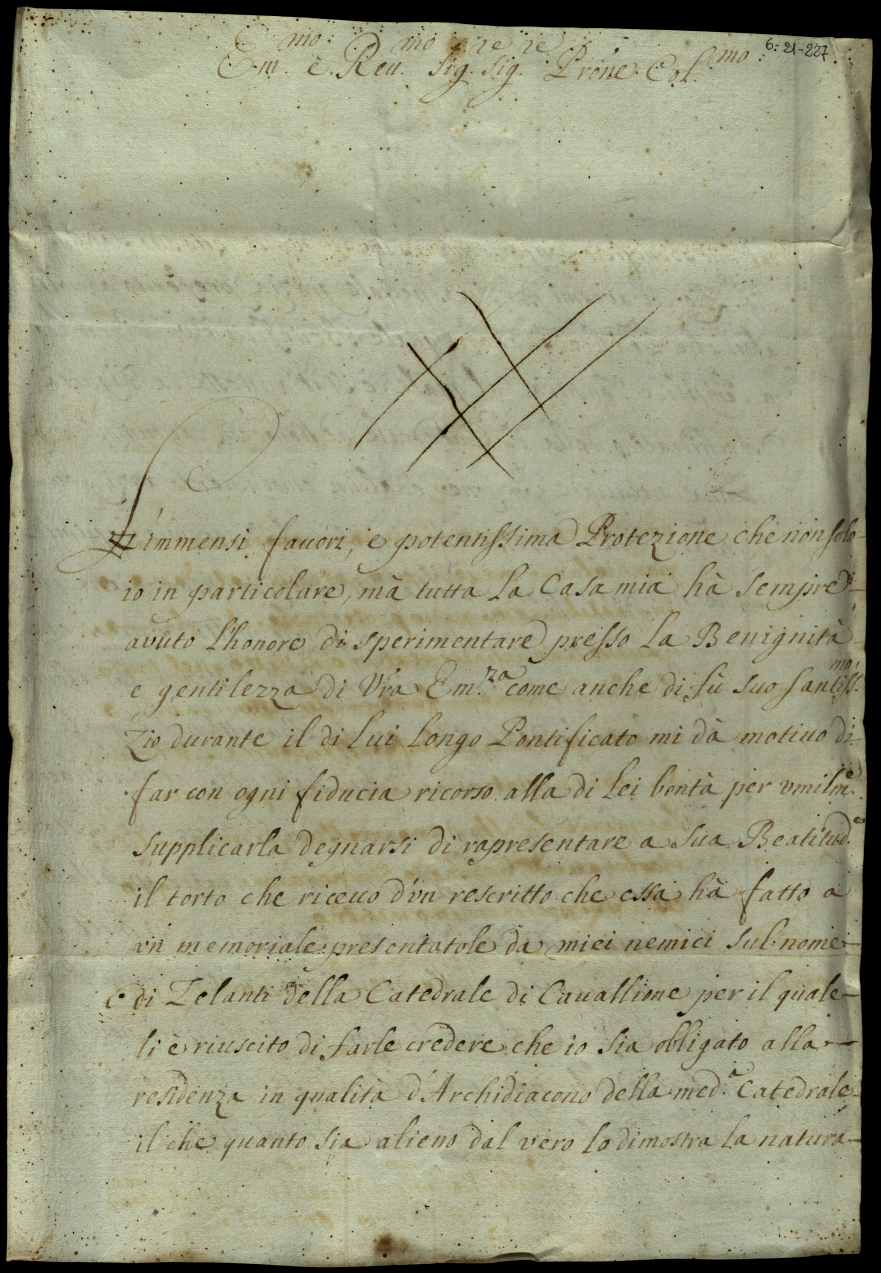 6-21-227
Em.mo e Reu.mo Sig.re Sig.re Prōne Col.mo
L'immensi fauori, e potentissima Protezione che non solo
io in particolare, mà tutta la Casa mia hà sempre
avuto l'honore di sperimentare presso la Benignità
e gentilezza di Vrā Em.za come anche di sù suo Santiss.mo
Zio durante il di lui longo Pontificato mi dà motiuo di
far con ogni fiducia ricorso alla di Lei bontà per vmilm.e
supplicarla degnarsi di rapresentare a sua Beatitud.e
il torto che riceuo d'vn rescritto che essa hà fatto a
vn memoriale presentatole da miei nemici sul nome
di Zelanti della Catedrale di Cauallione per il quale
li è riuscito di farle credere che io sia obligato alla
residenza in qualità d'Archidiacono della med.a Catedrale
il che quanto sia alieno dal vero lo dimostra la natura